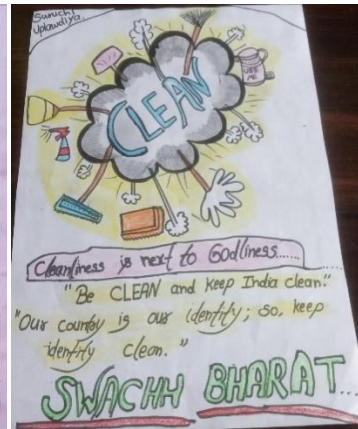 Suruchi
Uplawdiya.
CLEAN
USE
ME
Cleanliness is next to Godliness......
"Be CLEAN and keep India clean!"
"Our country is our identity; so, keep
identity clean."
SWACHH BHARAT...